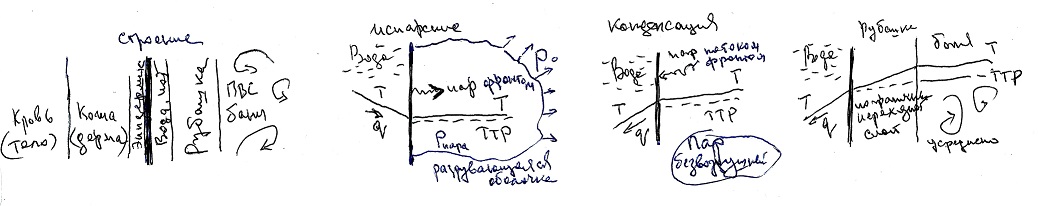 строение
Кровь
(тело)
Кожа
(дерма)
Эпидермис
Рубашка
ПВС
баня
испарение
Вода
пар фронтом
P₀
T
T
q
ТТР
Pпара
раздувающаяся
оболочка
конденсация
Вода
пар потоком
фронтом
T
T
q
ТТР
Пар
безвоздушный
Рубашка
Вода
баня
T
T
ТТР
q
пограничный
переходной
слой
усреднено